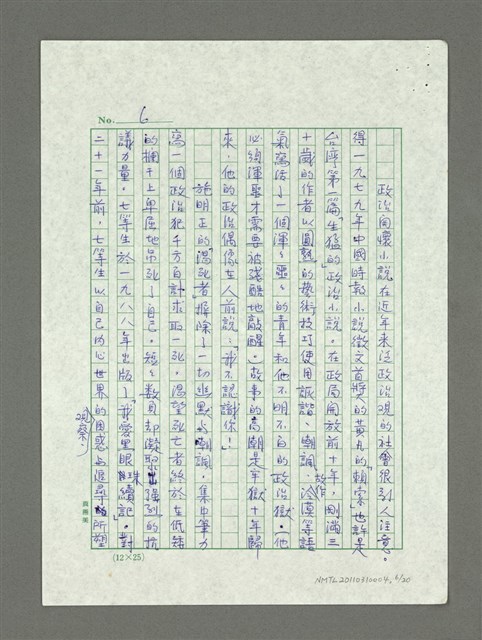 No. 6
政治關懷小說在近年來泛政治現的社會很引人注意。
得一九七九年中國時報小說徵文首獎的黃凡的「賴索」也許是
台灣第一篇生猛的「政治小說」。在政局開放前十年，剛滿三
十歲的作者以圓熟的藝術技巧使用詼諧、嘲諷、故作冷漠等語
氣寫活了一個渾渾噩噩的青年和他不明不白的政治獄。（他
必須渾噩才需要被殘酷地敲醒。）故事的高潮是牢獄十年歸
來，他的政治偶像在人前說：我不認識你！
施明正的「渴死者」摒除了一切幽默或嘲諷，集中筆力
寫一個政治犯千方百計求取一死。渴望死亡者終於在低矮
的欄干上卑屈地吊死了自己。短短數頁却凝聚出強烈的抗
議力量。七等生於一九八八年出版了「我愛黑眼珠續記」。對
二十一年前，七等生以自己內心世界的困惑與追尋所塑
觀察，
(12×25)
NMTL20110310004, 6/20